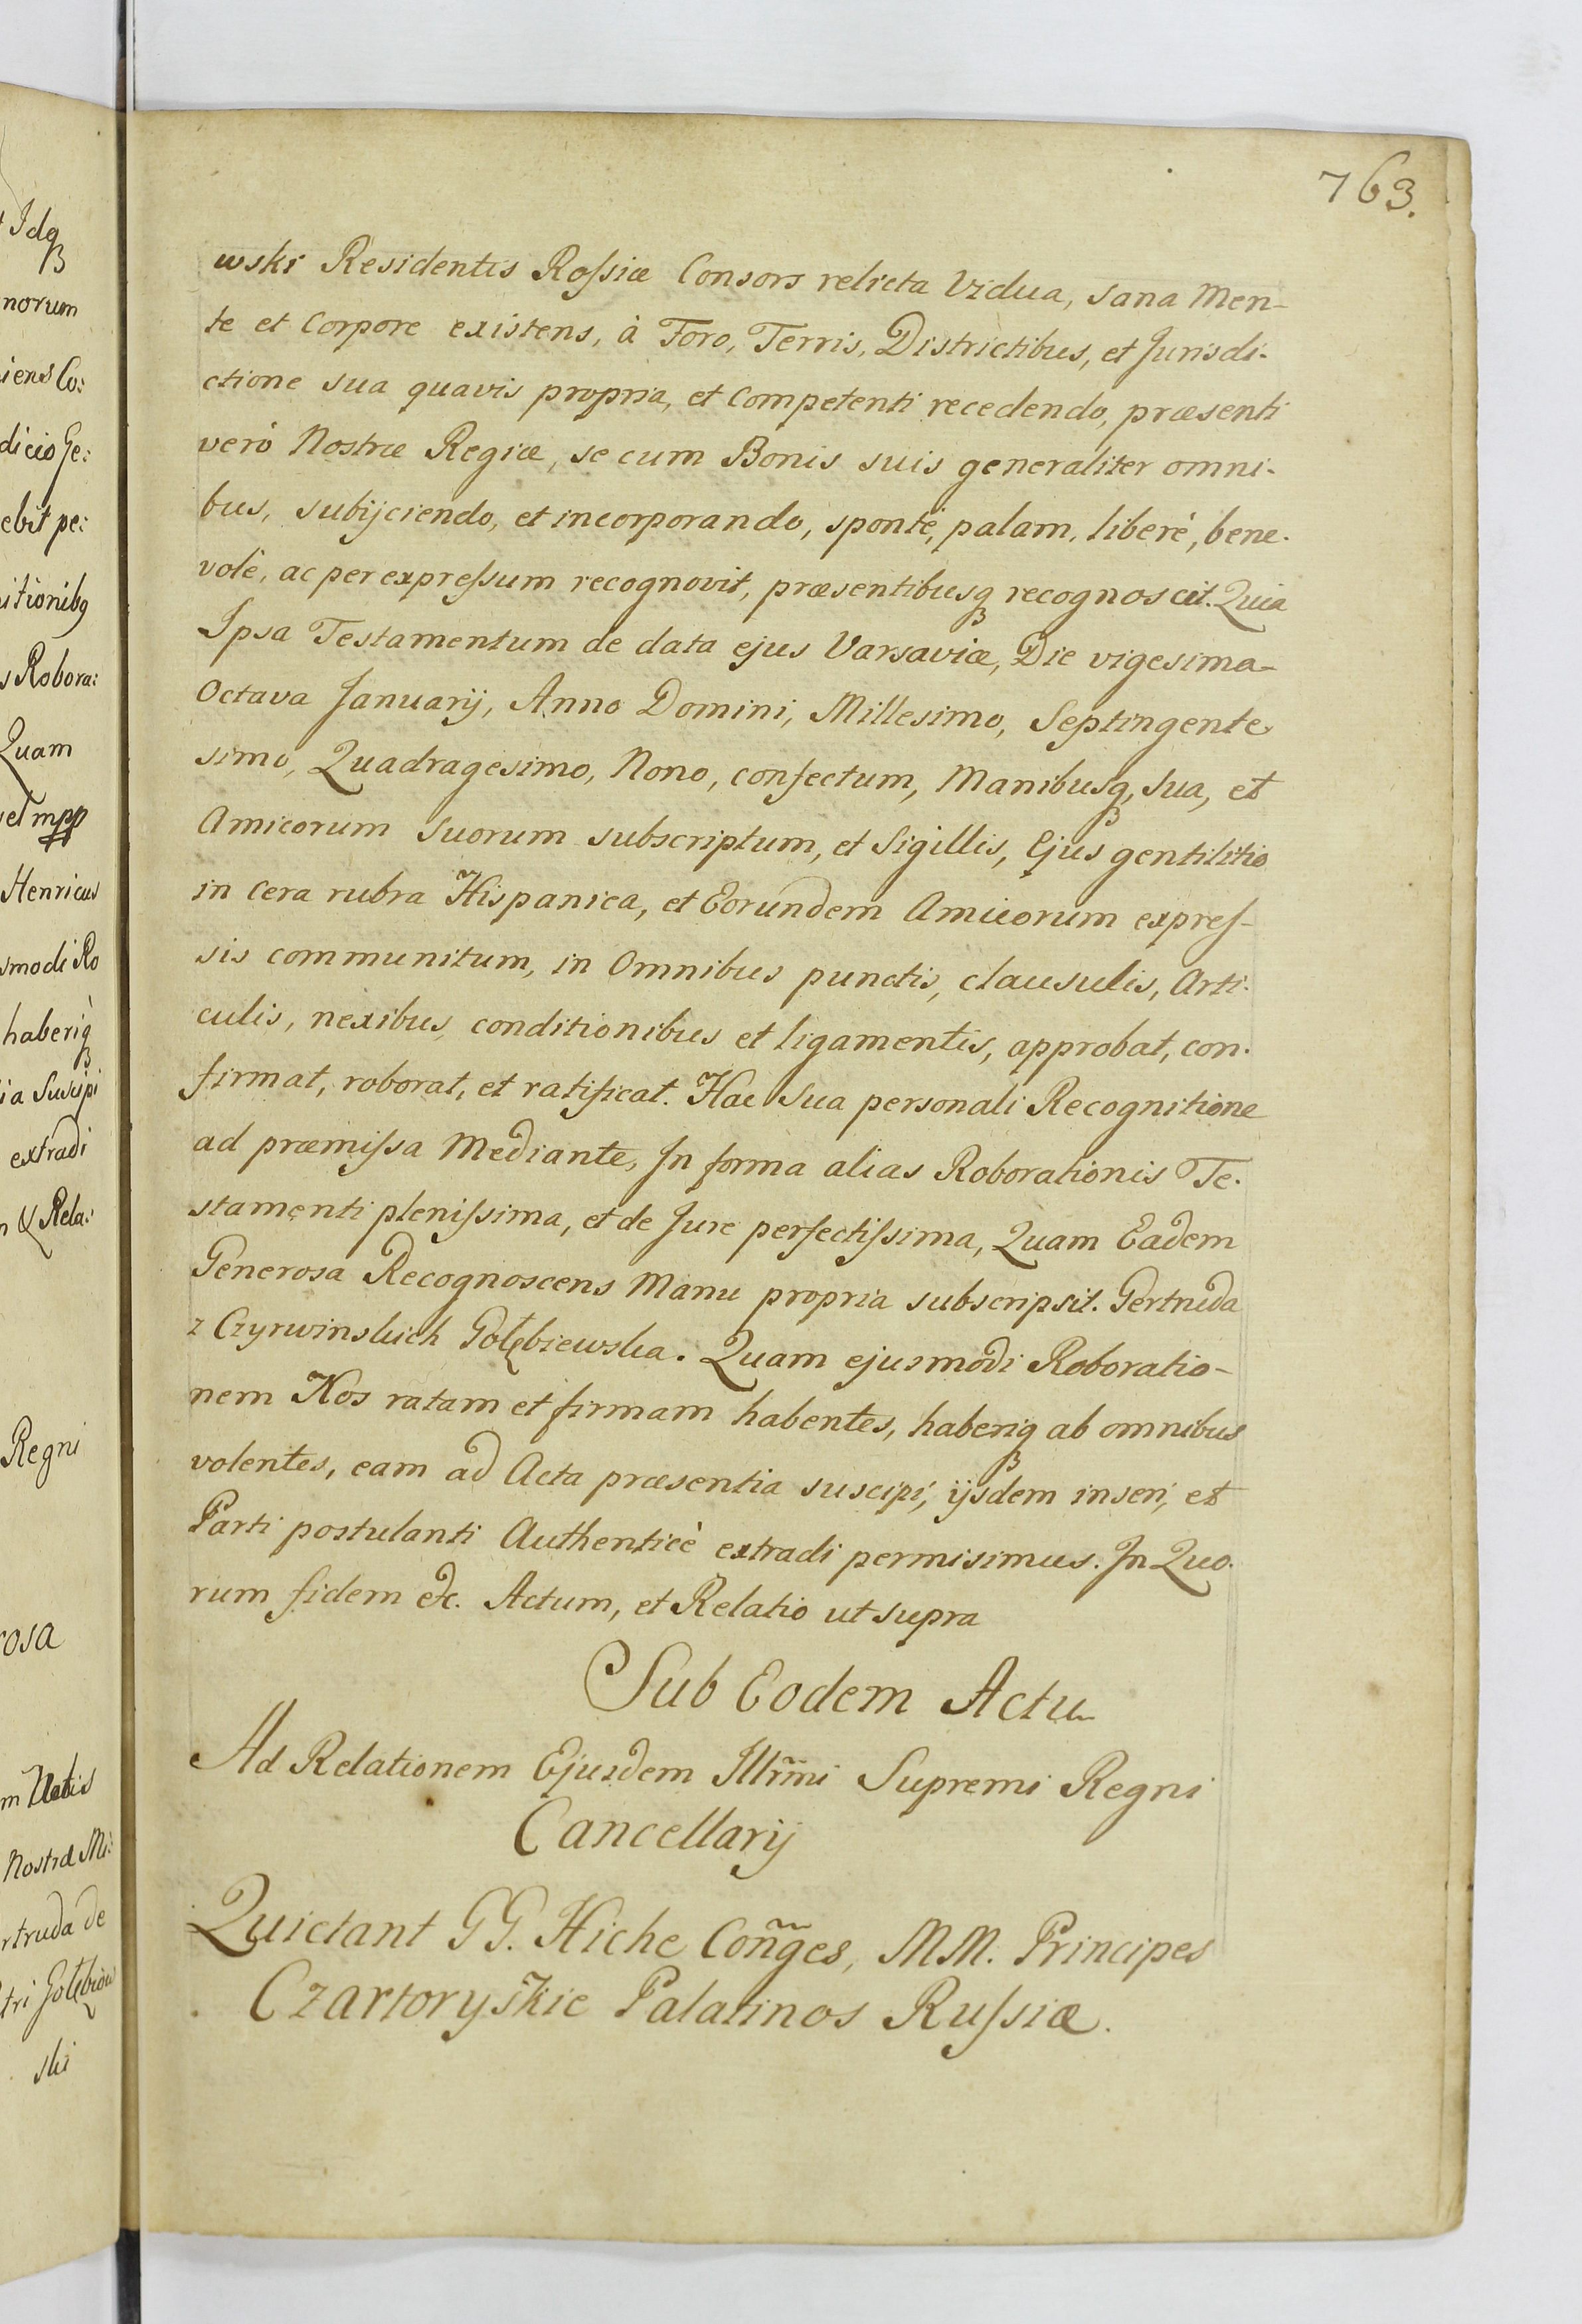 763.
wski Residentis Rossiæ Consors relicta Vidua, sana Men-
te et Corpore existens, à Foro, Terris, Districtibus, et Jurisdi-
ctione sua quavis propria, et Competenti recedendo, præsenti
verò Nostræ Regiæ, se cum Bonis suis generaliter omni-
bus, subijciendo, et incorporando, spontè, palam, liberè, bene-
volè, ac per expressum recognovit, præsentibusq recognoscit. Quia
Ipsa Testamentum de data ejus Varsaviæ, Die vigesima-
Octava Januarij, Anno Domini, Millesimo, Septingente
simo, Quadragesimo, Nono, confectum, Manibusq, sua, et
Amicorum Suorum subscriptum, et Sigillis, Ejus gentilitio
in cera rubra Hispanica, et Eorundem Amicorum expres-
sis communitum, in Omnibus punctis, clausulis, Arti-
culis, nexibus, conditionibus et ligamentis, approbat, con-
firmat, roborat, et ratificat. Hac Sua personali Recognitione
ad præmissa Mediante, In forma alias Roborationis Te-
stamenti plenissima, et de Jure perfectissima, Quam Eadem
Generosa Recognoscens Manu propria subscripsit. Gertruda
z Czyrwinskich Gołębiewska. Quam ejusmodi Roboratio-
nem Nos ratam et firmam habentes, haberiq ab omnibus
volentes, eam ad Acta præsentia suscipi, ijsdem inseri, et
Parti postulanti Authenticè extradi permisimus. In Quo-
rum fidem etc. Actum, et Relatio ut supra
Sub Eodem Actu
Ad Relationem Ejusdem Illrm̃i Supremi Regni
Cancellarij
Quietant GG. Hiche Con̄ges, MM. Principes
Czartoryskie Palatinos Russiæ.
Idq
norum
iens Co:
dicio Ge:
ebit pe:
itionibq
s Robora:
Quam
et mpp
Henricus
smodi Ro
haberiq
ia Suscipi
extradi
& Rela:
Regni
rosa
Nostra Mi:
rtruda de
tri Gołębiow
ski